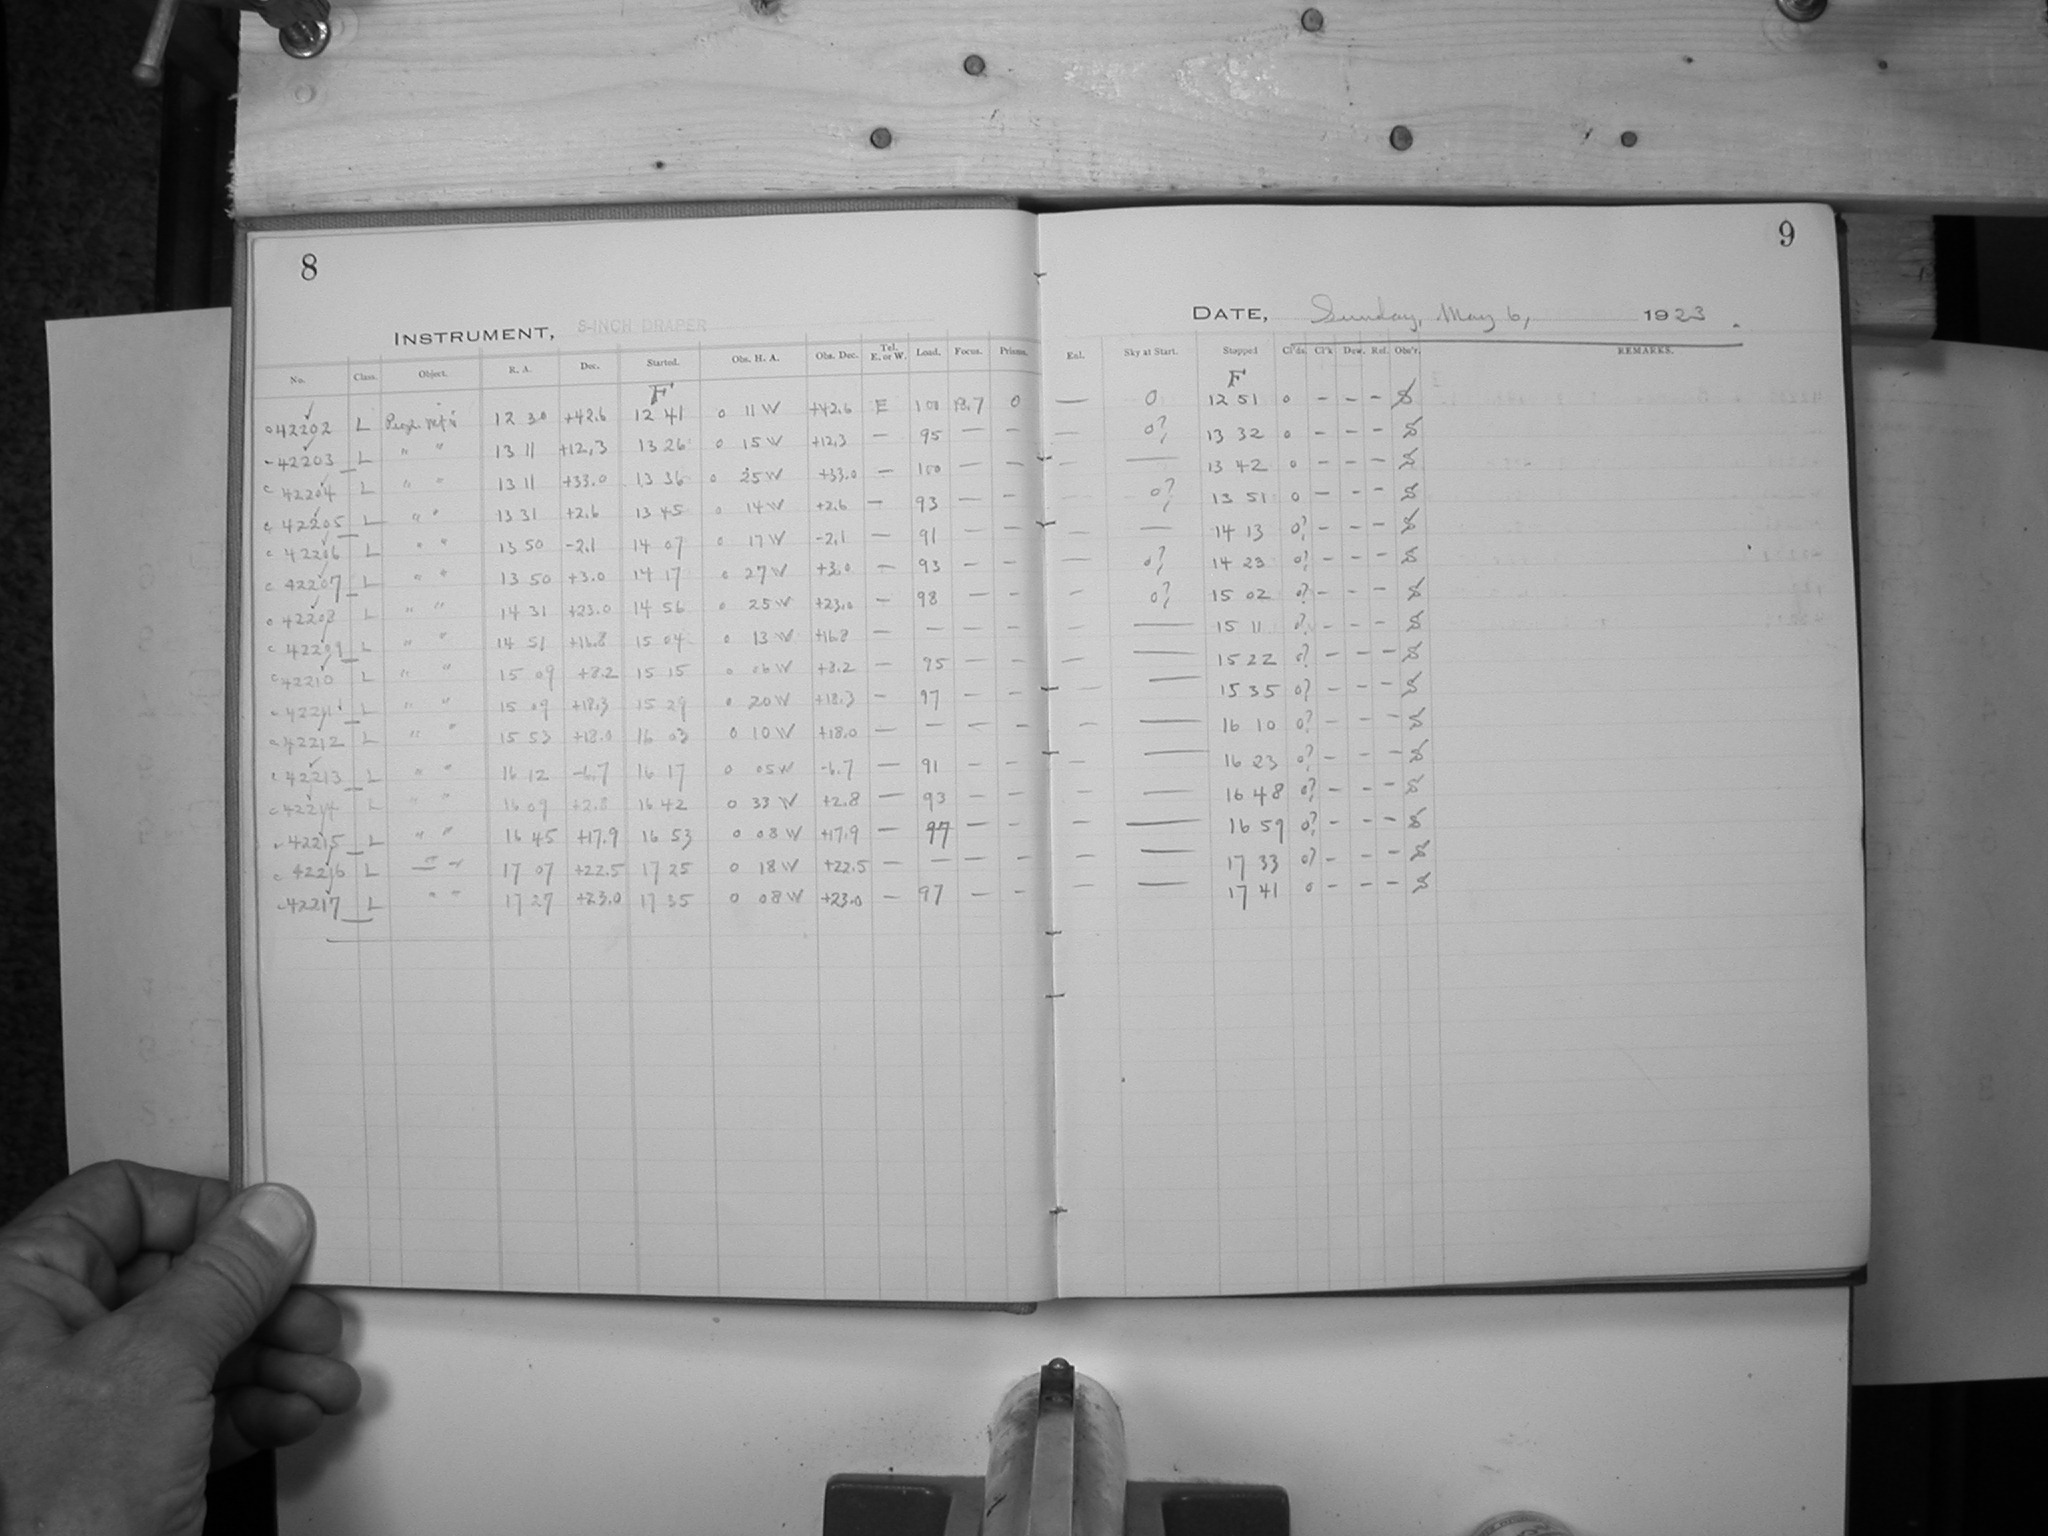 8
INSTRUMENT, 8-INCH DRAPER
No. Class. Object. R. A. Dec. Started. Obs. H. A. Obs. Dec. Tel. E. or W. Load. Focus. Prisms.
F
42202 L 12 30 +42.6 12 41 0 11 W +42.6 E 100 13.7 0
42203 L " " 13 11 +12.3 13 26 0 15 W +12.3 — 95 — —
42204 L " " 13 11 +33.0 13 36 0 25 W +33.0 — 100 — —
42205 L " " 13 31 +2.6 13 45 0 14 W +2.6 — 93 — —
42206 L " " 13 50 -2.1 14 07 0 17 W -2.1 — 91 — —
42207 L " " 13 50 +3.0 14 17 0 27 W +3.0 — 93 — —
42208 L " " 14 31 +23.0 14 56 0 25 W +23.0 — 98 — —
42209 L " " 14 51 +16.8 15 04 0 13 W +16.8 — — — —
42210 L " " 15 09 +8.2 15 15 0 06 W +8.2 — 95 — —
42211 L " " 15 09 +18.3 15 29 0 20 W +18.3 — 97 — —
42212 L " " 15 53 +18.0 16 03 0 10 W +18.0 — — — —
42213 L " " 16 12 -6.7 16 17 0 05 W -6.7 — 91 — —
42214 L " " 16 09 +2.8 16 42 0 33 W +2.8 — 93 — —
42215 L " " 16 45 +17.9 16 53 0 08 W +17.9 — 97 — —
42216 L 17 07 +22.5 17 25 0 18 W +22.5 — — — —
42217 L " " 17 27 +23.0 17 35 0 08 W +23.0 — 97 — —
9
DATE, Sunday, May 6, 1923.
Enl. Sky at Start. Stopped Cl'ds. Cl'k Dew. Ref. Obs'r. REMARKS.
F
— 0 12 51 0 — — —
— 0? 13 32 0 — — —
— — 13 42 0 — — —
— 0? 13 51 0 — — —
— — 14 13 0? — — —
— 0? 14 23 0? — — —
— 0? 15 02 0? — — —
— — 15 11 0? — — —
— — 15 22 0? — — —
— — 15 35 0? — — —
— — 16 10 0? — — —
— — 16 23 0? — — —
— — 16 48 0? — — —
— — 16 59 0? — — —
— — 17 33 0? — — —
— — 17 41 0 — — —